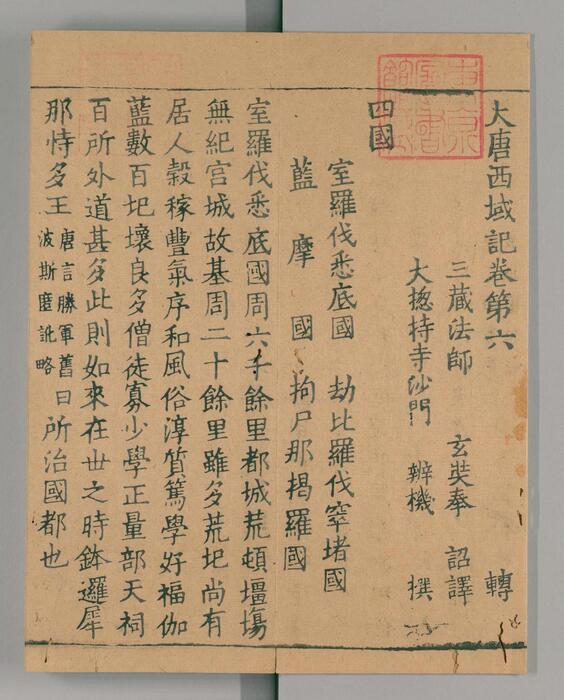 大唐西域記卷第六 轉
三藏法師 玄奘奉 詔譯
大揔持寺沙門 辨機 撰
四國
室羅伐悉底國 劫比羅伐窣堵國
藍摩國 拘尸那揭羅國
室羅伐悉底國周六千餘里都城荒頓壃埸
無紀宫城故基周二十餘里雖多荒圮尚有
居人穀稼豐氣序和風俗淳質篤學好福伽
藍數百圮壞良多僧徒寡少學正量部天祠
百所外道甚多此則如來在世之時鉢邏犀
那恃多王唐言勝軍舊曰波斯匿訛略所治國都也